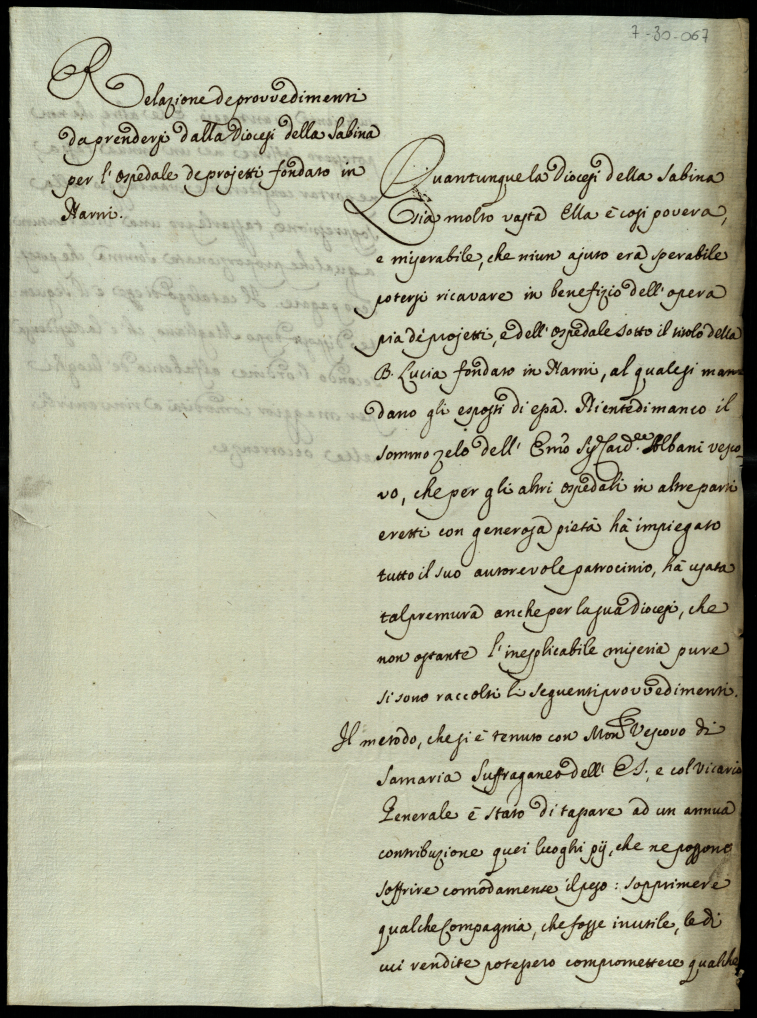 7-30-067
Relazione de provvedimenti
da prendersi dalla Diocesi della Sabina
per l'ospedale de projetti fondato in
Narni.
Quantunque la Diocesi della Sabina
sia molto vasta Ella è così povera,
e miserabile, che niun ajuto era sperabile
potersi ricavare in benefizio dell'opera
pia de' projetti, e dell'ospedale sotto il titolo della
B. Lucia fondato in Narni, al quale si man
dano gli esposti di essa. Nientedimanco il
sommo zelo dell' Emo Sig Card.le Albani vesco
vo, che per gli altri ospedali in altre parti
eretti con generosa pietà hà impiegato
tutto il suo autorevole patrocinio, hà usata
tal premura anche per la sua diocesi, che
non ostante l'inesplicabile miseria pure
si sono raccolti li seguenti provvedimenti.
Il metodo, che si è tenuto con Mons Vescovo di
Samaria Suffraganeo dell' ES., e col vicario
Generale è stato di tassare ad un annua
contribuzione quei luoghi pij, che ne possono
soffrire comodamente il peso: sopprimere
qualche Compagnia, che fosse inutile, le di
cui rendite potessero compromettere qualche